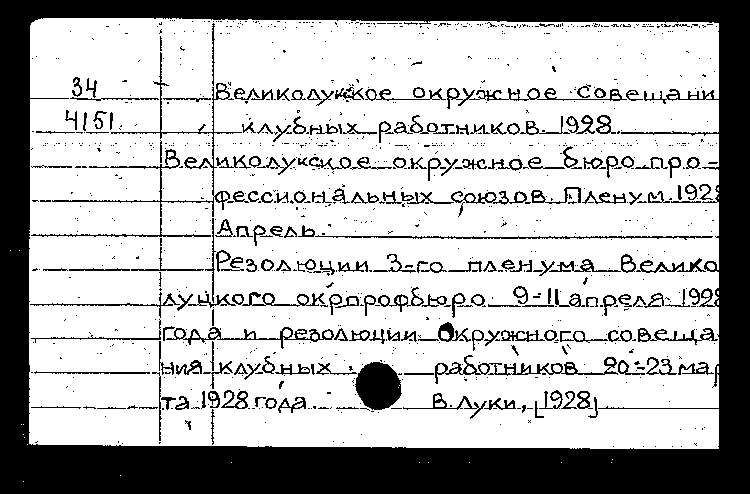 34 Великолукское окружное совещани
4151 клубных работников. 1928
Великолукское окружное бюро про-
фессиональных союзов. Пленум. 1928
Апрель.
Резолюции 3-го пленума Велико
луцкого окрпрофбюро 9-11 апреля 1928
года и резолюции окружного совеща
ния клубных работников 20-23 мар
та 1928 года. В. Луки, [1928]